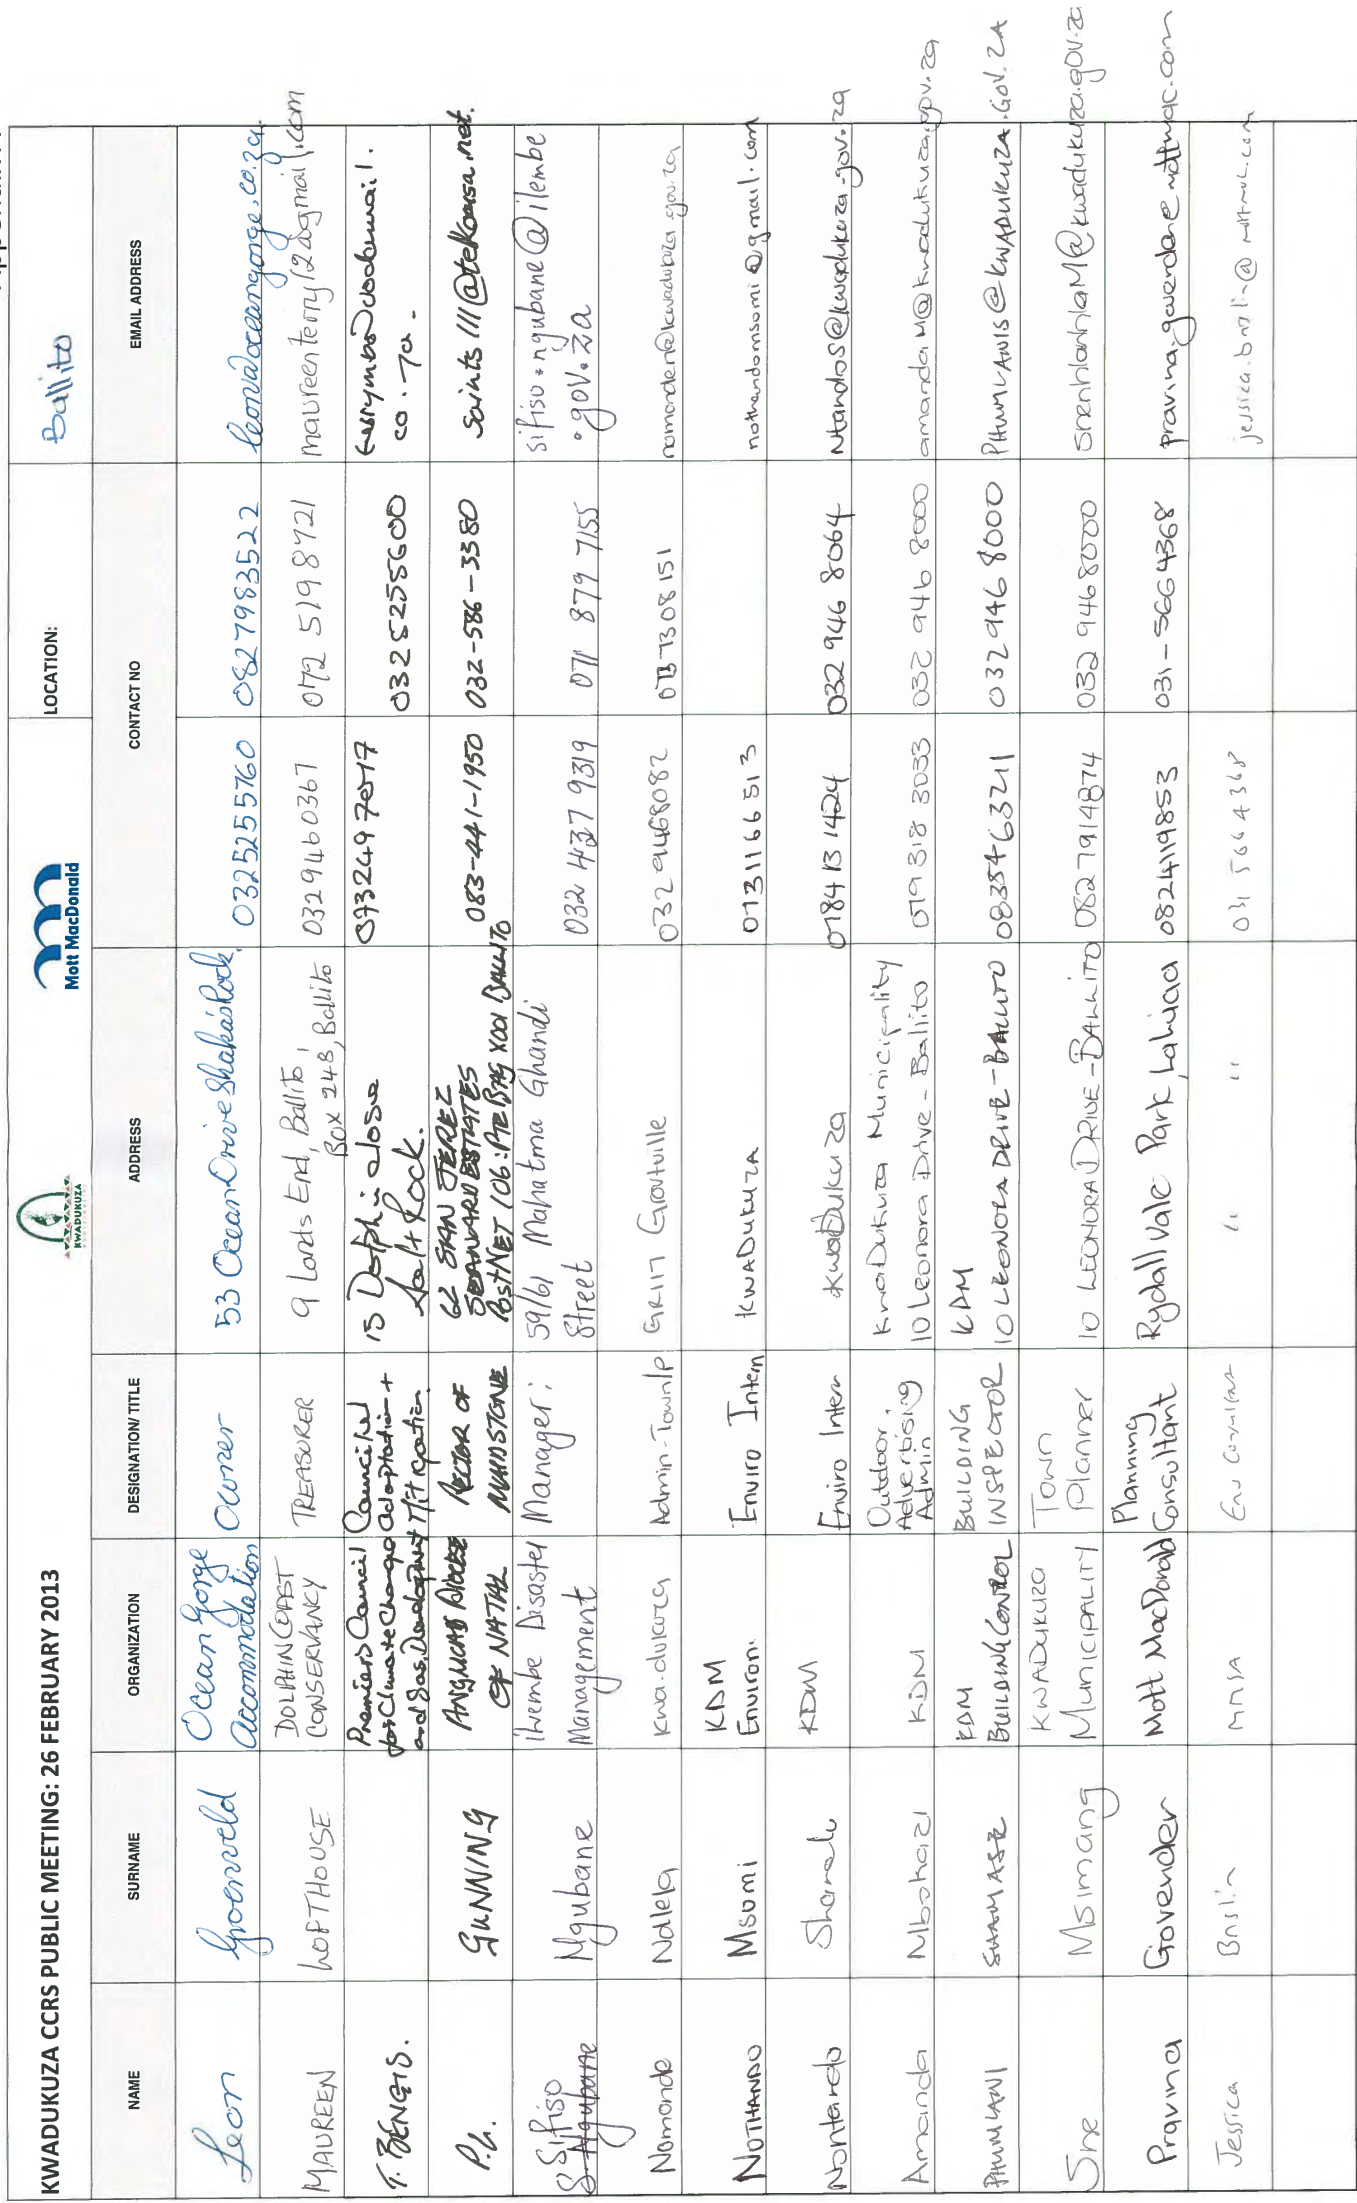 KWADUKUZA CCRS PUBLIC MEETING: 26 FEBRUARY 2013
KWADUKUZA
Mott MacDonald
LOCATION:
Ballito
NAME SURNAME ORGANIZATION DESIGNATION/ TITLE ADDRESS CONTACT NO EMAIL ADDRESS
Leon Groenveld Ocean Gorge Accommodation Owner 53 Ocean Drive Shaka's Rock 0325255760 0827983522 leon@oceangorge.co.za
MAUREEN LOFTHOUSE DOLPHIN COAST CONSERVANCY TREASURER 9 Lands End, Ballito, Box 248, Ballito 0329460367 072 519 8721
T. BENGIS. Premiers Council for Climate Change and Sus. Development Council adaptation + Mitigation 15 Dolphin close Salt Rock. 0325255600 co.za.
P.G. GUNNING ANGLICAN DIOCESE OF NATAL RECTOR OF MAIDSTONE 62 SAN JEREZ SEAWARD ESTATES PostNET 106: Pte BAG X001 BALLITO 083-441-1950 032-586-3380
Sifiso Ngubane Ilembe Disaster Management Manager: 59/61 Mahatma Ghandi Street 032 437 9319 071 879 7155 sifiso.ngubane@ilembe.gov.za
Nomonde Ndlela Kwa-dukuza Admin- Groutville 032 9468082
NOTHANDO Msomi KDM Environ. Enviro Intern KWADUKUZA 0731166513 nothandomsomi@gmail.com
Nontando KDM Enviro Intern KwaDukuza 0784131424 032 946 8064 NtandoS@kwadukuza.gov.za
Amanda Mbohazi KDM Outdoor Advertising Admin KwaDukuza Municipality 10 Leonora Drive - Ballito 079 318 3033 032 946 8000 amandaM@kwadukuza.gov.za
PHUMLANI SHAMASE KDM BUILDING CONTROL BUILDING INSPECTOR KDM 10 LEONORA DRIVE - BALLITO 0835463211 032 946 8000 PHUMLANIS@KWADUKUZA.GOV.ZA
Sne Msimang KWADUKUZA MUNICIPALITY Town Planner 10 LEONORA DRIVE - BALLITO 0827914874 032 9468000
Pravina Govender Mott MacDonald Planning Consultant Rydall Vale Park, La Lucia 0824119853 031-5664368 pravina.govender@mottmac.com
Jessica MMSA Env Consultant " " 031 5664368